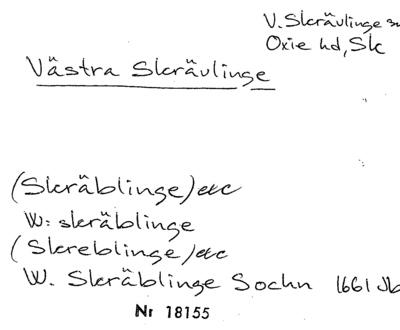 V. Skrävlinge
Oxie hd, Sk
Västra Skrävlinge
(Skräblinge) etc
W: skräblinge
(Skreblinge) etc
W. Skräblinge Sochn 1661 Jb
Nr 18155